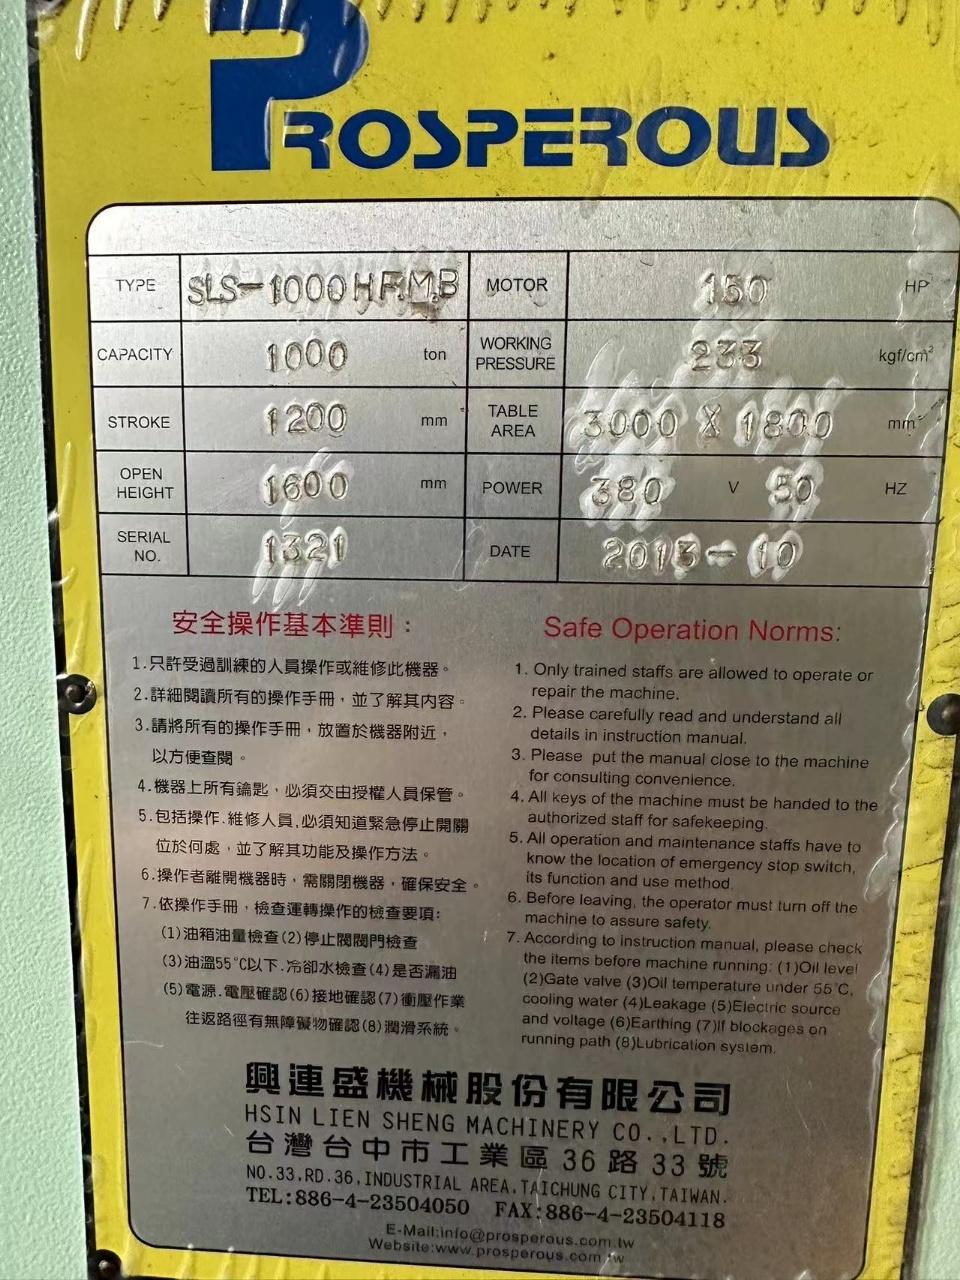 PROSPEROUS
TYPE SLS-1000HF.M.B MOTOR 150 HP
CAPACITY 1000 ton WORKING PRESSURE 233 kgf/cm²
STROKE 1200 mm TABLE AREA 3000 X 1800 mm²
OPEN HEIGHT 1600 mm POWER 380 V 50 HZ
SERIAL NO. 1321 DATE 2013-10
安全操作基本準則：
1.只許受過訓練的人員操作或維修此機器。
2.詳細閱讀所有的操作手冊，並了解其內容。
3.請將所有的操作手冊，放置於機器附近，
以方便查閱。
4.機器上所有鑰匙，必須交由授權人員保管。
5.包括操作.維修人員,必須知道緊急停止開關
位於何處，並了解其功能及操作方法。
6.操作者離開機器時，需關閉機器，確保安全。
7.依操作手冊，檢查運轉操作的檢查要項:
(1)油箱油量檢查(2)停止閥閥門檢查
(3)油溫55°C以下.冷卻水檢查(4)是否漏油
(5)電源.電壓確認(6)接地確認(7)衝壓作業
往返路徑有無障礙物確認(8)潤滑系統。
Safe Operation Norms:
1. Only trained staffs are allowed to operate or
repair the machine.
2. Please carefully read and understand all
details in instruction manual.
3. Please put the manual close to the machine
for consulting convenience.
4. All keys of the machine must be handed to the
authorized staff for safekeeping.
5. All operation and maintenance staffs have to
know the location of emergency stop switch,
its function and use method.
6. Before leaving, the operator must turn off the
machine to assure safety.
7. According to instruction manual, please check
the items before machine running: (1)Oil level
(2)Gate valve (3)Oil temperature under 55°C,
cooling water (4)Leakage (5)Electric source
and voltage (6)Earthing (7)If blockages on
running path (8)Lubrication system.
興連盛機械股份有限公司
HSIN LIEN SHENG MACHINERY CO.,LTD.
台灣台中市工業區36路33號
NO.33,RD.36,INDUSTRIAL AREA,TAICHUNG CITY,TAIWAN.
TEL:886-4-23504050 FAX:886-4-23504118
E-Mail:info@prosperous.com.tw
Website:www.prosperous.com.tw